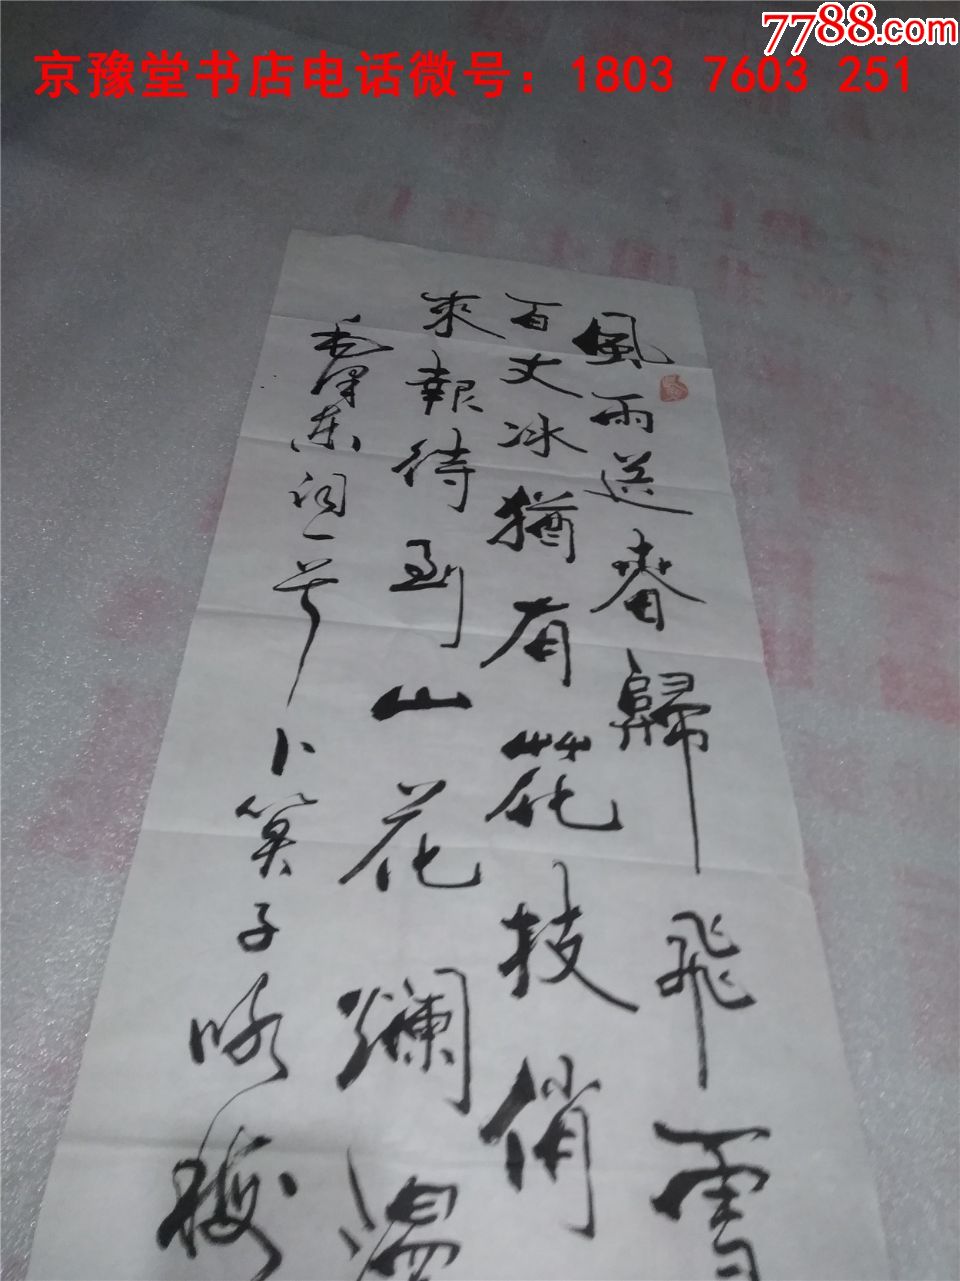 7788.com
京豫堂书店电话微号：1803 7603 251
風雨送春歸飛雪
百丈冰猶有花枝俏
來報待到山花爛漫
毛澤东词一首
卜算子咏梅